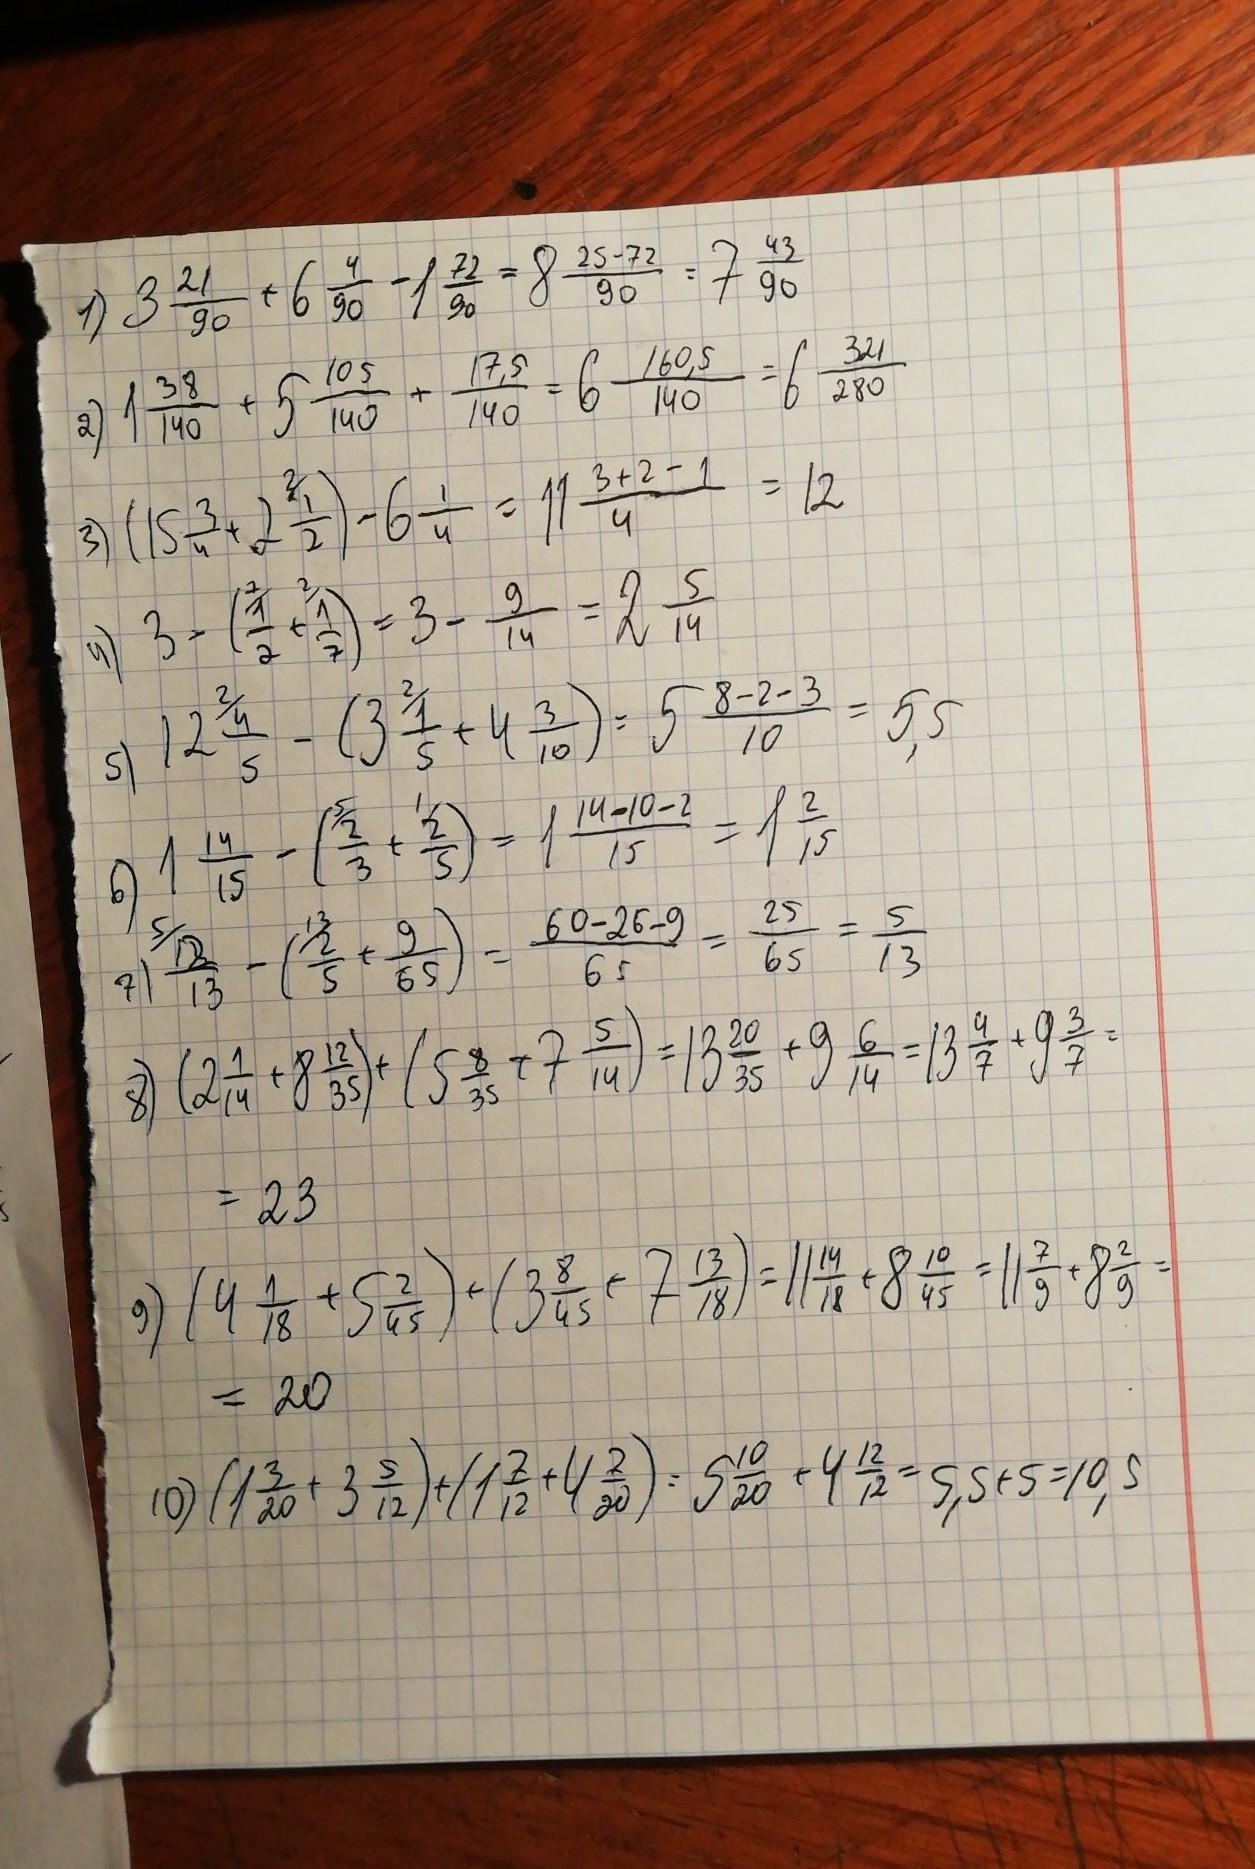 1) 3 21/90 + 6 4/90 - 1 72/90 = 8 25-72/90 = 7 43/90
2) 1 38/140 + 5 105/140 + 17,5/140 = 6 160,5/140 = 6 321/280
3) (15 3/4 + 2 2/ 1/2) - 6 1/4 = 11 3+2-1/4 = 12
4) 3 - (7/ 1/2 + 2/ 1/7) = 3 - 9/14 = 2 5/14
5) 12 2/ 4/5 - (3 2/ 1/5 + 4 3/10) = 5 8-2-3/10 = 5,5
6) 1 14/15 - (5/ 2/3 + 1/ 2/5) = 1 14-10-2/15 = 1 2/15
7) 5/ 12/13 - (13/ 2/5 + 9/65) = 60-26-9/65 = 25/65 = 5/13
8) (2 1/14 + 8 12/35) + (5 8/35 + 7 5/14) = 13 20/35 + 9 6/14 = 13 4/7 + 9 3/7 =
= 23
9) (4 1/18 + 5 2/45) + (3 8/45 + 7 13/18) = 11 14/18 + 8 10/45 = 11 7/9 + 8 2/9 =
= 20
10) (1 3/20 + 3 5/12) + (1 7/12 + 4 7/20) = 5 10/20 + 4 12/12 = 5,5 + 5 = 10,5